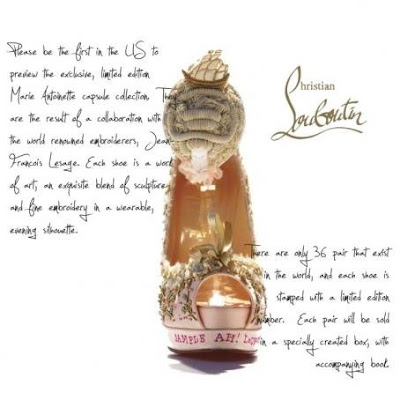 Please be the first in the US to
preview the exclusive, limited edition
Marie Antoinette capsule collection. They
are the result of a collaboration with
the world renowned embroiderers, Jean-
Francois Lesage. Each shoe is a work
of art; an exquisite blend of sculpture
and fine embroidery in a wearable,
evening silhouette.
Christian
Louboutin
There are only 36 pair that exist
in the world, and each shoe is
stamped with a limited edition
number. Each pair will be sold
in a specially created box, with
accompanying book.
SAMPLE